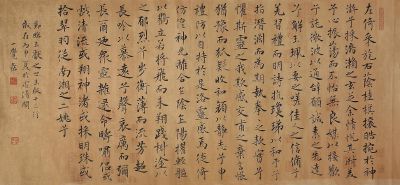 左倚采旄右蔭桂旗攘皓腕於神
滸兮採湍瀨之玄芝余情悅其淑美
兮心振蕩而不怡無良媒以接歡
兮託微波以通辭願誠素之先達
兮解玉珮以要之嗟佳人之信脩兮
羌習禮而明詩抗瓊珶以和予兮
指潛淵而為期執拳拳之款實兮
懼斯靈之我欺感交甫之棄言悵
猶豫而狐疑收和顏以靜志兮申
禮防以自持於是洛靈感焉徙倚
彷徨神光離合乍陰乍陽擢輕軀
以鶴立若將飛而未翔踐椒塗
之郁烈兮步蘅薄而流芳超
長吟以慕遠兮聲哀厲而彌
長爾迺眾靈雜遝命疇嘯侶或
戲清流或翔神渚或採明珠或
拾翠羽從南湘之二姚兮